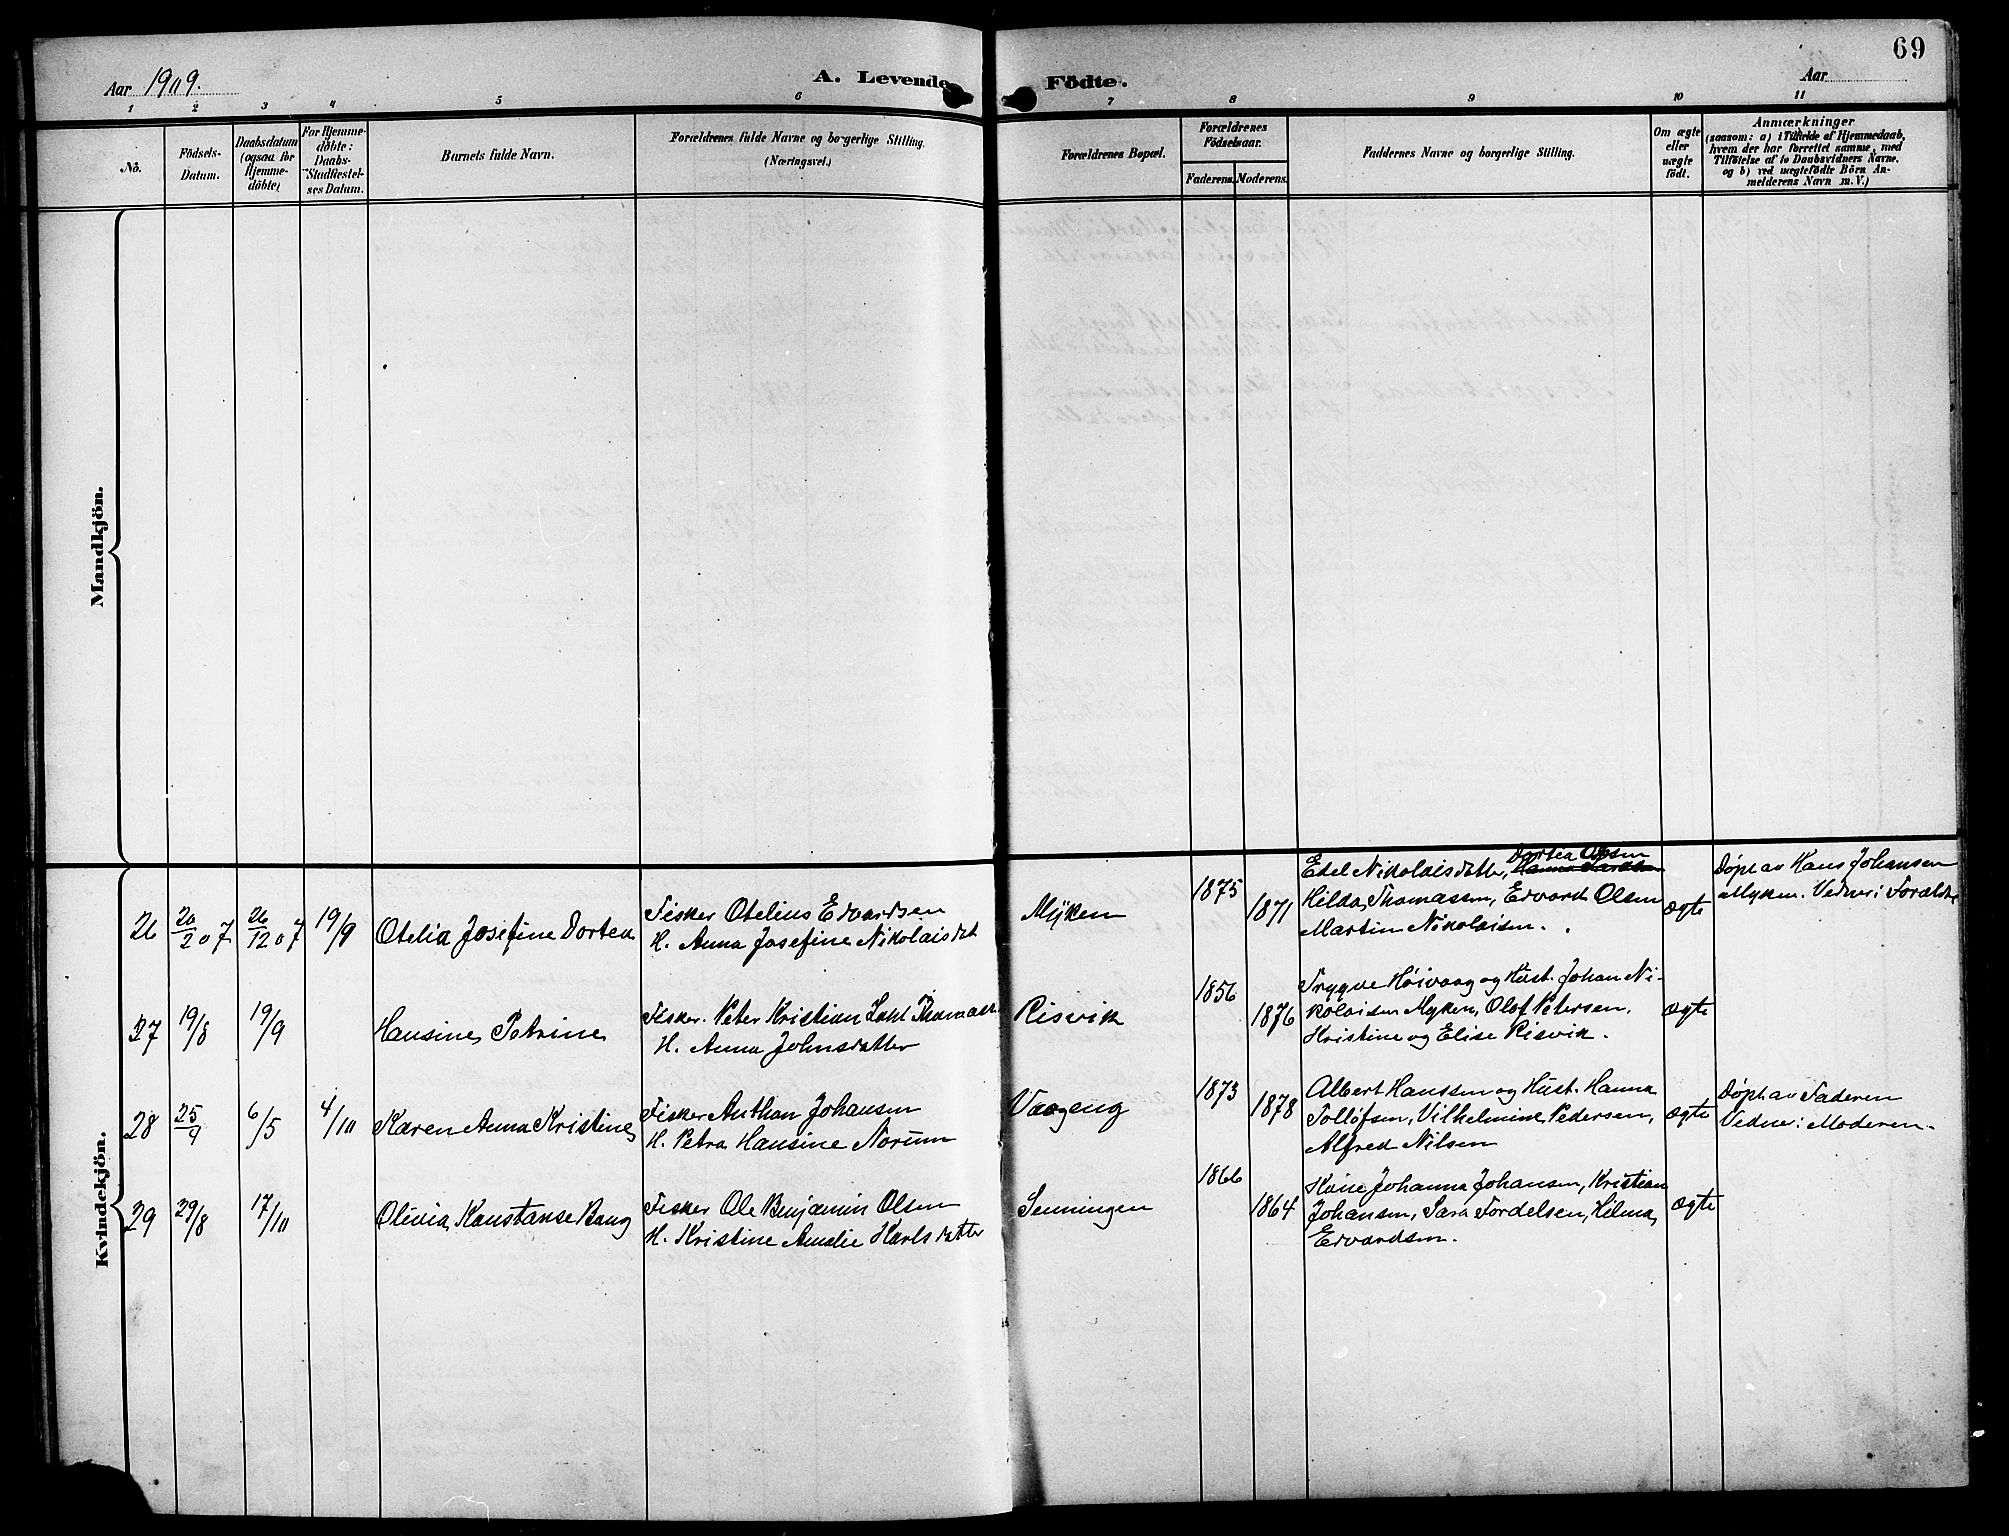 69
Aar 1909.
A. Levende
Födte.
Aar
1 2 3 4 5 6 7 8 9 10 11
No.
Födsels-
Datum.
Daabsdatum
(ogsaa for
Hjemme-
döbte)
For Hjemme-
döbte:
Daabs-
Stadfæstel-
ses Datum.
Barnets fulde Navn.
Forældrenes fulde Navne og borgerlige Stilling.
(Næringsvei.)
Forældrenes Bopæl.
Forældrenes
Födselsaar.
Faderens. Moderens.
Faddernes Navne og borgerlige Stilling.
Om ægte
eller
uægte
födt.
Anmærkninger
(saasom: a) i Tilfælde af Hjemmedaab,
hvem der har forrettet samme, med
Tilföielse af to Daabsvidners Navne,
og b) ved uægtefödte Börn An-
melderens Navn m. V.)
Mandkjön.
Kvindekjön.
26 20/2 07 26/12 07 19/9
Otelia Josefine Dortea
Fisker Otelius Edvardsen
H. Anna Josefine Nikolaisdat
Myken
1875
1871
Dortea Olsen
Edel Nikolaisdatter,
Hilda Thomassen, Edvard Olsen
Martin Nikolaisen.
ægte
Døpt av Hans Johansen
Myken. Vedner: Forældre
27 19/8 19/9
Hansine Petrine
Fisker Peter Kristian Thomass.
H. Anna Johnsdatter
Risvik
1856
1876
Trygve Høivaag og Hust. Johan Ni-
kolaisen Myken, Olof Petersen,
Kristine og Elise Risvik.
ægte
28 25/9 6/5 4/10
Karen Anna Kristine
Fisker Anthon Johansen
H. Petra Hansine Norum
Vaageng
1873
1878
Albert Hanssen og Hust. Hanna
Tollofsen, Vilhelmine Pedersen,
Alfred Nilsen
ægte
Døpt av Faderen
Vedne: Moderen.
29 29/8 17/10
Olivia Konstanse Bang
Fisker Ole Benjamin Olsen
H. Kristine Amalie Karlsdatter
Senningen
1866
1864
Kone Johanna Johansen, Kristian
Johansen, Sara Tordelsen, Hilma
Edvardsen.
ægte